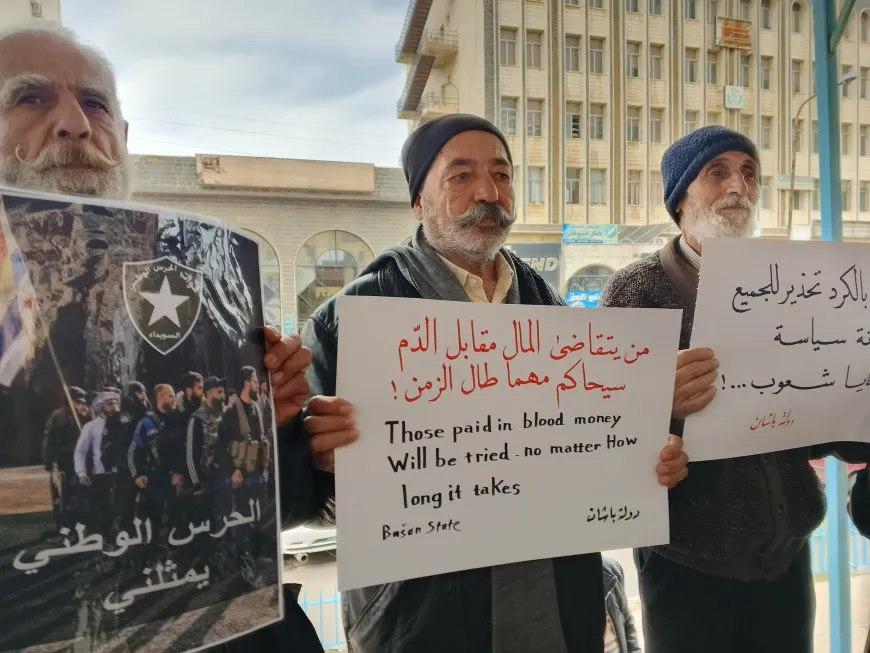 السويداء
الحرس الوطني
يمثلني
من يتقاضىٰ المال مقابل الدّم
سيحاكم مهما طال الزمن !
Those paid in blood money
Will be tried - no matter How
long it takes
Bašan State
دولة باشان
بالكرد تحذير للجميع
سياسة
شعوب ...!
دولة باشان